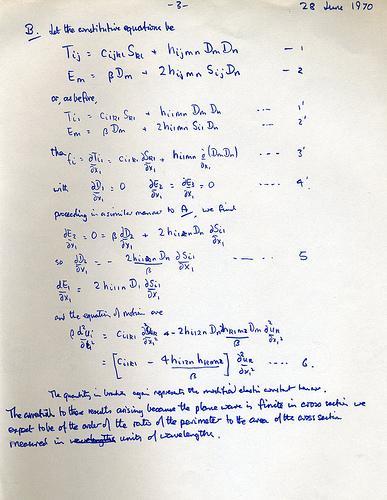 -3-
28 June 1970
B. Let the constitutive equations be
Tij = Cijkl Skl + hijmn Dm Dn — 1
Em = βDm + 2hijmn Sij Dn — 2
or, as before,
Ti1 = Ci1k1 Sk1 + hi1mn Dm Dn ---- 1'
Em = βDm + 2hi1mn Si1 Dn 2'
then fi = ∂Ti1/∂x1 = Ci1k1 ∂Sk1/∂x1 + hi1mn ∂/∂x1 (DmDn) ---- 3'
with ∂D1/∂x1 = 0 ∂E2/∂x1 = ∂E3/∂x1 = 0 ---- 4'.
proceeding in a similar manner to A, we find
∂E2/∂x1 = 0 = β ∂D2/∂x1 + 2hi12n Dn ∂Si1/∂x1
so ∂D2/∂x1 = - 2hi12n Dn/β ∂Si1/∂x1 ---- 5
∂E1/∂x1 = 2hi11n D1 ∂Si1/∂x1
and the equation of motion are
ρ ∂²ui/∂t² = Ci1k1 ∂²uk/∂x1² - 2hi12n Dn hk1m2 Dm/β ∂²uk/∂x1²
= [Ci1k1 - 4hi12n hk1m2/β] ∂²uk/∂x1² ---- 6.
The quantity in brackets again represents the modified elastic constant tensor.
The correction to these results arising because the plane wave is finite in cross section we
expect to be of the order of the ratio of the perimeter to the area of the cross section
measured in units of wavelengths.